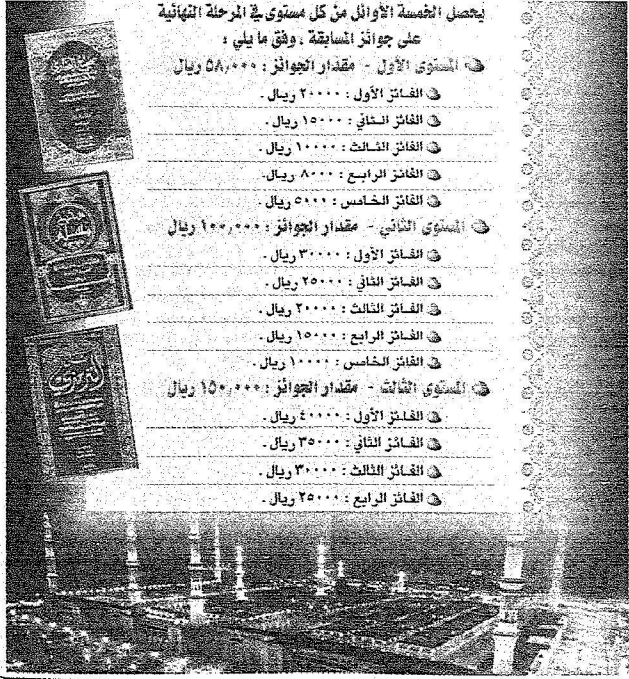 يحصل الخمسة الأوائل من كل مستوى في المرحلة النهائية
على جوائز المسابقة ، وفق ما يلي :
المستوى الأول - مقدار الجوائز : ٥٨,٠٠٠ ريال
الفائز الأول : ٢٠٠٠٠ ريال .
الفائز الثاني : ١٥٠٠٠ ريال .
الفائز الثالث : ١٠٠٠٠ ريال .
الفائز الرابع : ٨٠٠٠ ريال.
الفائز الخامس : ٥٠٠٠ ريال .
المستوى الثاني - مقدار الجوائز : ١٠٠,٠٠٠ ريال
الفائز الأول : ٣٠٠٠٠ ريال .
الفائز الثاني : ٢٥٠٠٠ ريال .
الفائز الثالث : ٢٠٠٠٠ ريال .
الفائز الرابع : ١٥٠٠٠ ريال .
الفائز الخامس : ١٠٠٠٠ ريال .
المستوى الثالث - مقدار الجوائز : ١٥٠,٠٠٠ ريال
الفائز الأول : ٤٠٠٠٠ ريال .
الفائز الثاني : ٣٥٠٠٠ ريال .
الفائز الثالث : ٣٠٠٠٠ ريال .
الفائز الرابع : ٢٥٠٠٠ ريال .